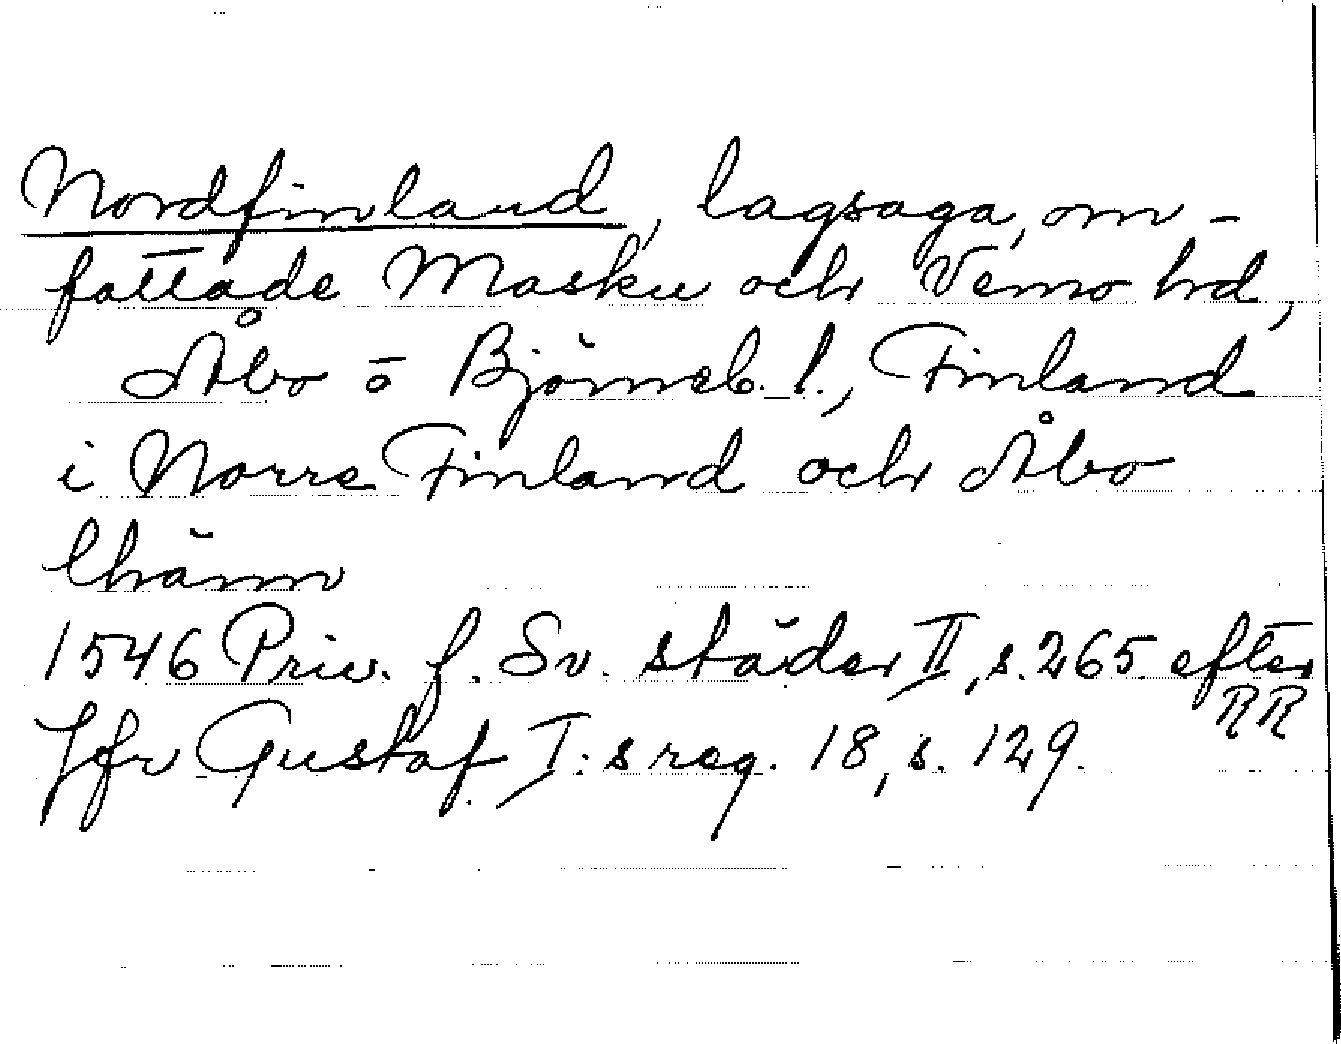 Nordfinland, lagsaga, om-
fattade Masku och Vemo hd,
Åbo o Björneb. l., Finland
i Norre Finland och Åbo
lhänn
1546 Priv. f. Sv. städer II, s. 265 efter
RR
Jfr Gustaf I:s reg. 18, s. 129.